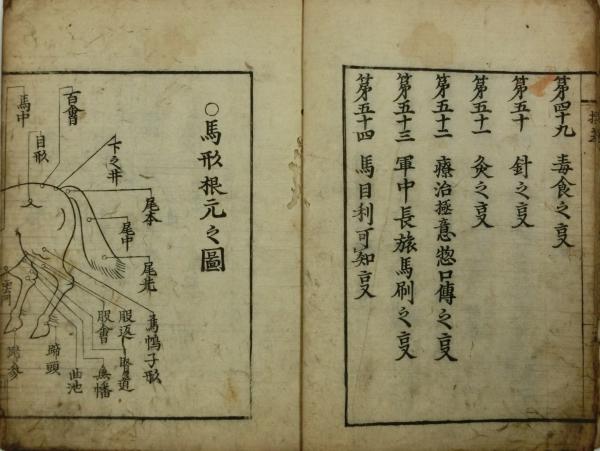 第四十九 毒食之亊
第五十 針之亊
第五十一 灸之亊
第五十二 療治極意惣口傳之亊
第五十三 軍中長旅馬刷之亊
第五十四 馬目利可知亊
○馬形根元之圖
百會
馬中
目形
下之井
尾本
尾中
尾先
烏帽子形
股返
股會
曲池
蹄頭